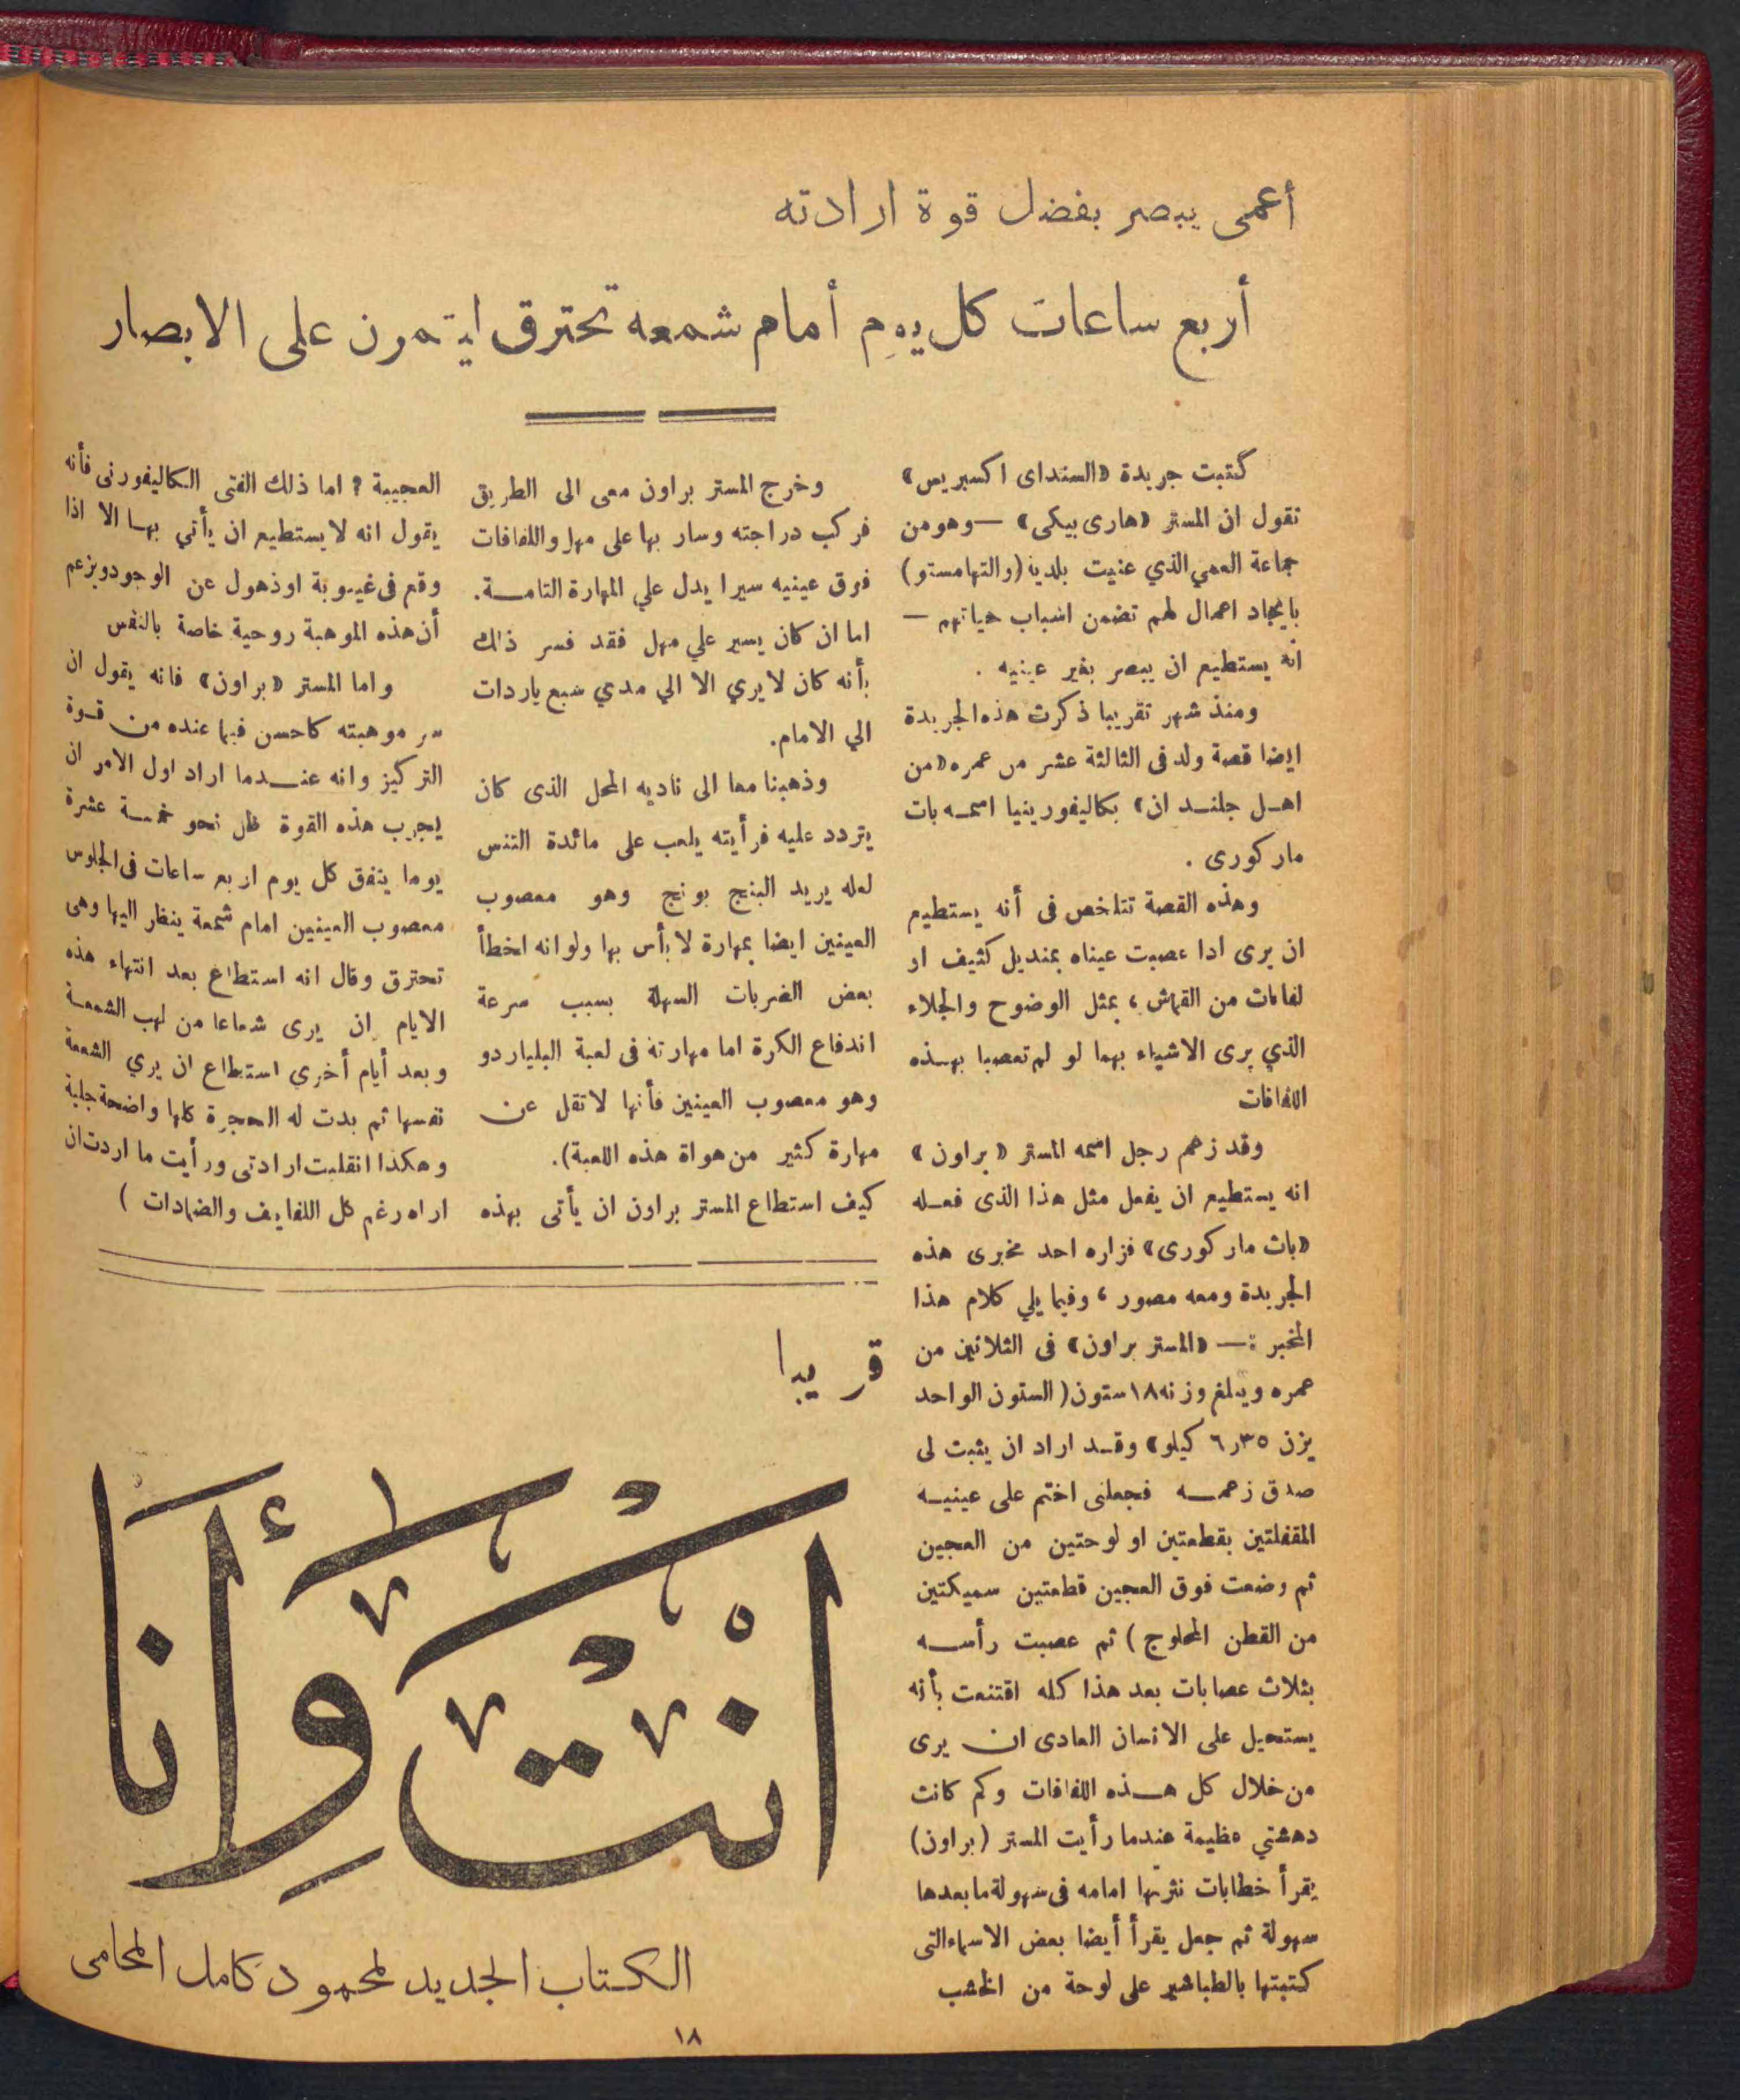 أعمى يبصر بفضل قوة ارادته
أربع ساعات كل يوم أمام شمعه تحترق ليتمرن على الابصار
كتبت جريدة «السنداى اكسبريس»
تقول ان المستر «هارى بيكى» — وهو من
جماعة العمي الذي عنيت بلدية (والتهامستو)
بايجاد اعمال لهم تضمن اسباب حياتهم —
انه يستطيع ان يبصر بغير عينيه .
ومنذ شهر تقريبا ذكرت هذه الجريدة
ايضا قصة ولد فى الثالثة عشر من عمره «من
اهل جلند ان» بكاليفورينيا اسمه بات
ماركورى .
وهذه القصة تتلخص فى أنه يستطيع
ان يرى اذا عصبت عيناه بمنديل كثيف او
لفافات من القماش ، بمثل الوضوح والجلاء
الذي يرى الاشياء بهما لو لم تعصبا بهذه
اللفافات
وقد زعم رجل اسمه المستر «براون»
انه يستطيع ان يفعل مثل هذا الذى فعله
«باث ماركورى» فزاره احد مخبرى هذه
الجريدة ومعه مصور ، وفيما يلي كلام هذا
المخبر :— «المستر براون» فى الثلاثين من
عمره ويبلغ وزنه ١٨ ستون (الستون الواحد
يزن ٦٫٣٥ كيلو» وقد اراد ان يثبت لى
صدق زعمه فجعلنى اختم على عينيه
المقفلتين بقطعتين او لوحتين من العجين
ثم وضعت فوق العجين قطعتين سميكتين
من القطن المحلوج ) ثم عصبت رأسه
بثلاث عصابات بعد هذا كله اقتنعت بأنه
يستحيل على الانسان العادى ان يرى
من خلال كل هذه اللفافات وكم كانت
دهشتي عظيمة عندما رأيت المستر (براون)
يقرأ خطابات نثرتها امامه فى سهولة ما بعدها
سهولة ثم جعل يقرأ أيضا بعض الاسماء التى
كتبتها بالطباشير على لوحة من الخشب
وخرج المستر براون معى الى الطريق
فركب دراجته وسار بها على مهل واللفافات
فوق عينيه سيرا يدل علي المهارة التامة.
اما ان كان يسير علي مهل فقد فسر ذلك
بأنه كان لا يري الا الي مدي سبع ياردات
الي الامام.
وذهبنا معا الى ناديه المحل الذى كان
يتردد عليه فرأيته يلعب على مائدة التنس
لعله يريد البنج بونج وهو معصوب
العينين ايضا بمهارة لا بأس بها ولو انه اخطأ
بعض الضربات السهلة بسبب سرعة
اندفاع الكرة اما مهارته فى لعبة البلياردو
وهو معصوب العينين فأنها لا تقل عن
مهارة كثير من هواة هذه اللعبة).
كيف استطاع المستر براون ان يأتى بهذه
العجيبة ؟ اما ذلك الفتى الكاليفورنى فأنه
يقول انه لا يستطيع ان يأتي بها الا اذا
وقع فى غيبوبة او ذهول عن الوجود ويزعم
أن هذه الموهبة روحية خاصة بالنفس
واما المستر «براون» فانه يقول ان
سر موهبته كاحسن فيما عنده من قوة
التركيز وانه عندما اراد اول الامر ان
يجرب هذه القوة ظل نحو خمسة عشرة
يوما ينفق كل يوم اربع ساعات فى الجلوس
معصوب العينين امام شمعة ينظر اليها وهى
تحترق وقال انه استطاع بعد انتهاء هذه
الايام ان يرى شعاعا من لهب الشمعة
وبعد أيام أخري استطاع ان يري الشمعة
نفسها ثم بدت له الحجرة كلها واضحة جلية
وهكذا انقلبت ارادتى ورأيت ما اردت ان
اراه رغم كل اللفايف والضمادات )
قريبا
انْتَ وَأَنا
الكتاب الجديد لمحمود كامل المحامى
١٨